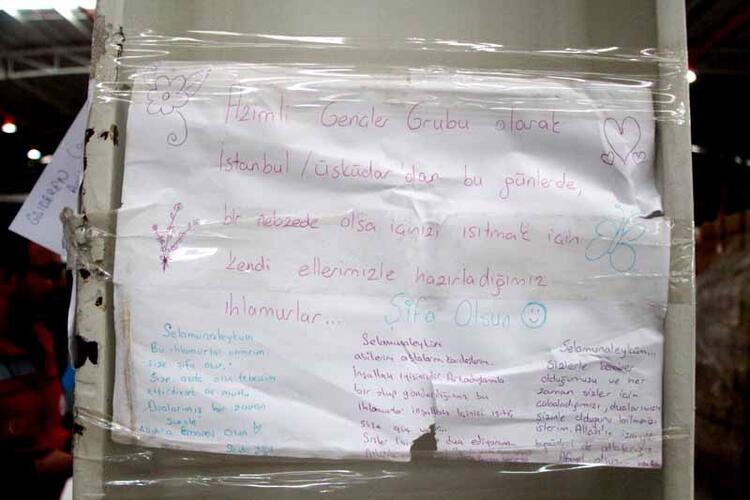 Azimli Gençler Grubu olarak
İstanbul / Üsküdar'dan bu günlerde,
bir nebzede olsa içinizi ısıtmak için
kendi ellerimizle hazırladığımız
ıhlamurlar...
Şifa Olsun
Selamunaleyküm
Bu ıhlamurlar umarım
size şifa olur.
Size azda olsa tebessüm
ettirdiysek ne mutlu
Dualarımız her zaman
sizinle
Allah'a Emanet Olun
Selamunaleyküm
abilerim ablalarım kardeşlerim
İnşallah iyisinizdir. Arkadaşlarımla
bir olup gönderdiğimiz bu
ıhlamurlar inşallah içinizi ısıtır,
Size
Sizler için dua ediyorum.
Selamunaleyküm...
Sizlerle beraber
olduğumuzu ve her
zaman sizler için
çabaladığımızı, dualarımızın
sizinle olduğunu bilmenizi
isterim. Allah'ın izniyle